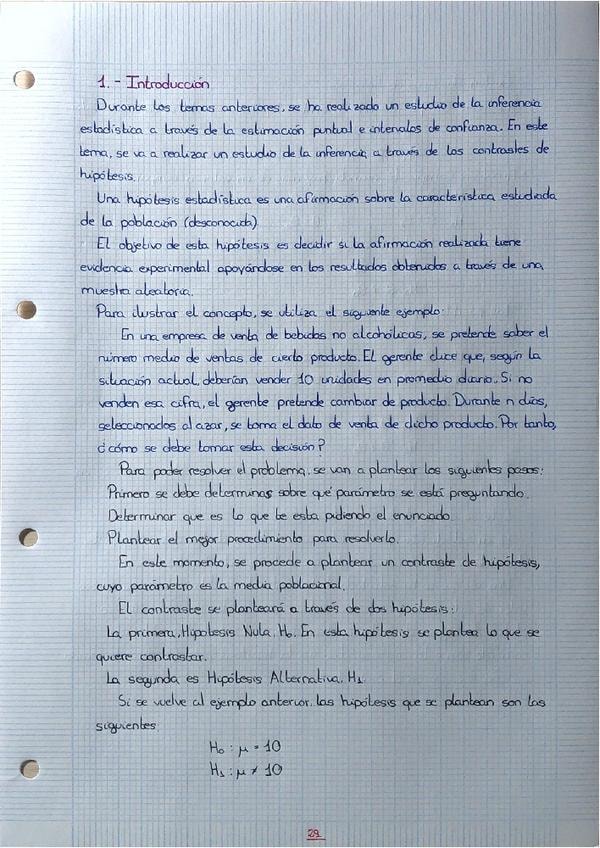 1.- Introducción
Durante los temas anteriores, se ha realizado un estudio de la inferencia
estadística a través de la estimación puntual e intervalos de confianza. En este
tema, se va a realizar un estudio de la inferencia a través de los contrastes de
hipótesis.
Una hipótesis estadística es una afirmación sobre la característica estudiada
de la población (desconocida)
El objetivo de esta hipótesis es decidir si la afirmación realizada tiene
evidencia experimental apoyándose en los resultados obtenidos a través de una
muestra aleatoria.
Para ilustrar el concepto, se utiliza el siguiente ejemplo:
En una empresa de venta de bebidas no alcohólicas, se pretende saber el
número medio de ventas de cierto producto. El gerente dice que, según la
situación actual, deberían vender 10 unidades en promedio diario. Si no
venden esa cifra, el gerente pretende cambiar de producto. Durante n días,
seleccionados al azar, se toma el dato de venta de dicho producto. Por tanto,
¿cómo se debe tomar esta decisión?
Para poder resolver el problema, se van a plantear los siguientes pasos:
Primero se debe determinar sobre qué parámetro se está preguntando.
Determinar que es lo que te esta pidiendo el enunciado
Plantear el mejor procedimiento para resolverlo.
En este momento, se procede a plantear un contraste de hipótesis,
cuyo parámetro es la media poblacional.
El contraste se planteará a través de dos hipótesis:
La primera, Hipótesis Nula, H₀. En esta hipótesis se plantea lo que se
quiere contrastar.
La segunda es Hipótesis Alternativa, H₁.
Si se vuelve al ejemplo anterior, las hipótesis que se plantean son las
siguientes
H₀ : μ = 10
H₁ : μ ≠ 10
29